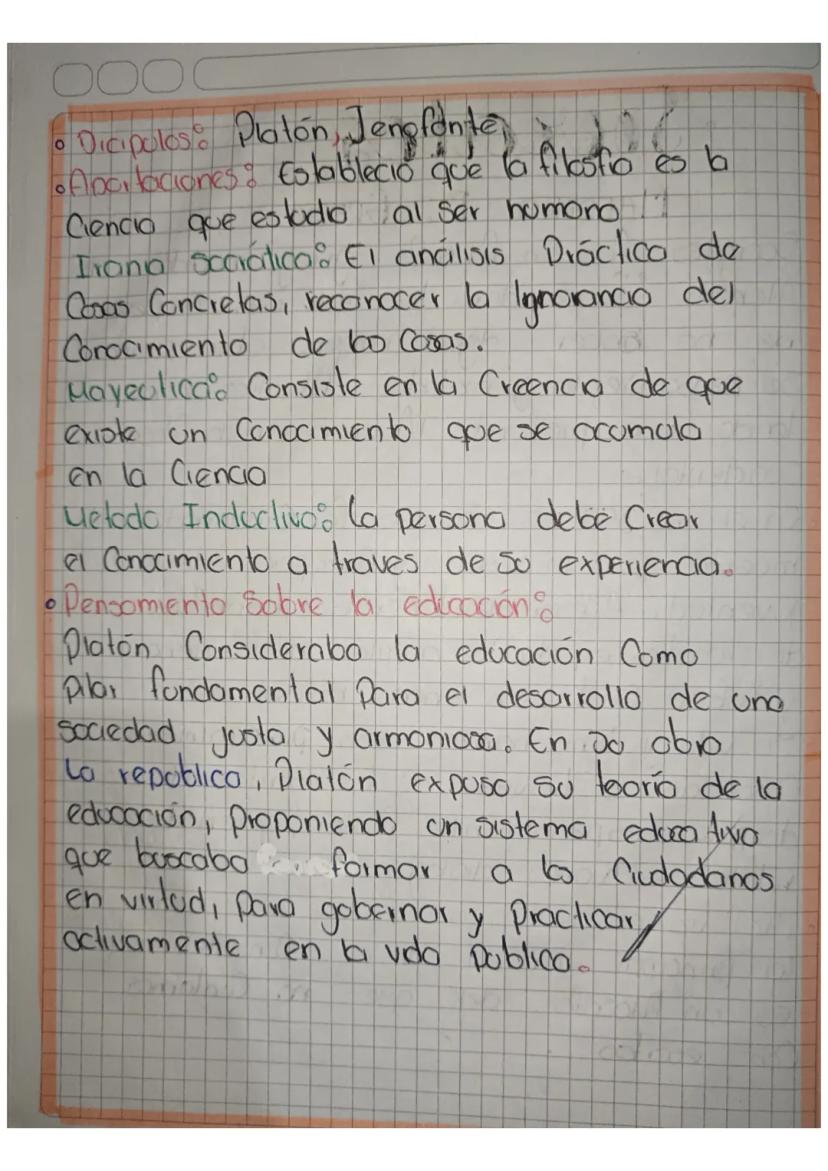 • Dicipolos: Platón, Jenofonte
• Aportaciones: Estableció que la filosofia es la
Ciencia que estudia al ser humano
Ironia Socrática: El análisis Práctico de
Cosas Concretas, reconocer la Ignorancia del
Conocimiento de las Cosas.
Mayeutica: Consiste en la Creencia de que
existe un Conocimiento que se acumula
en la Ciencia
Metodo Inductivo: la persona debe Crear
el Conocimiento a traves de su experiencia.
• Pensamiento Sobre la educación:
Platón Consideraba la educación Como
pilar fundamental Para el desarrollo de una
sociedad justa y armoniosa. En su obra
La republica, Platón expuso su teoría de la
educación, proponiendo un sistema educativo
que buscaba formar a los Ciudadanos
en virtud, para gobernar y Practicar
activamente en la vida publica.